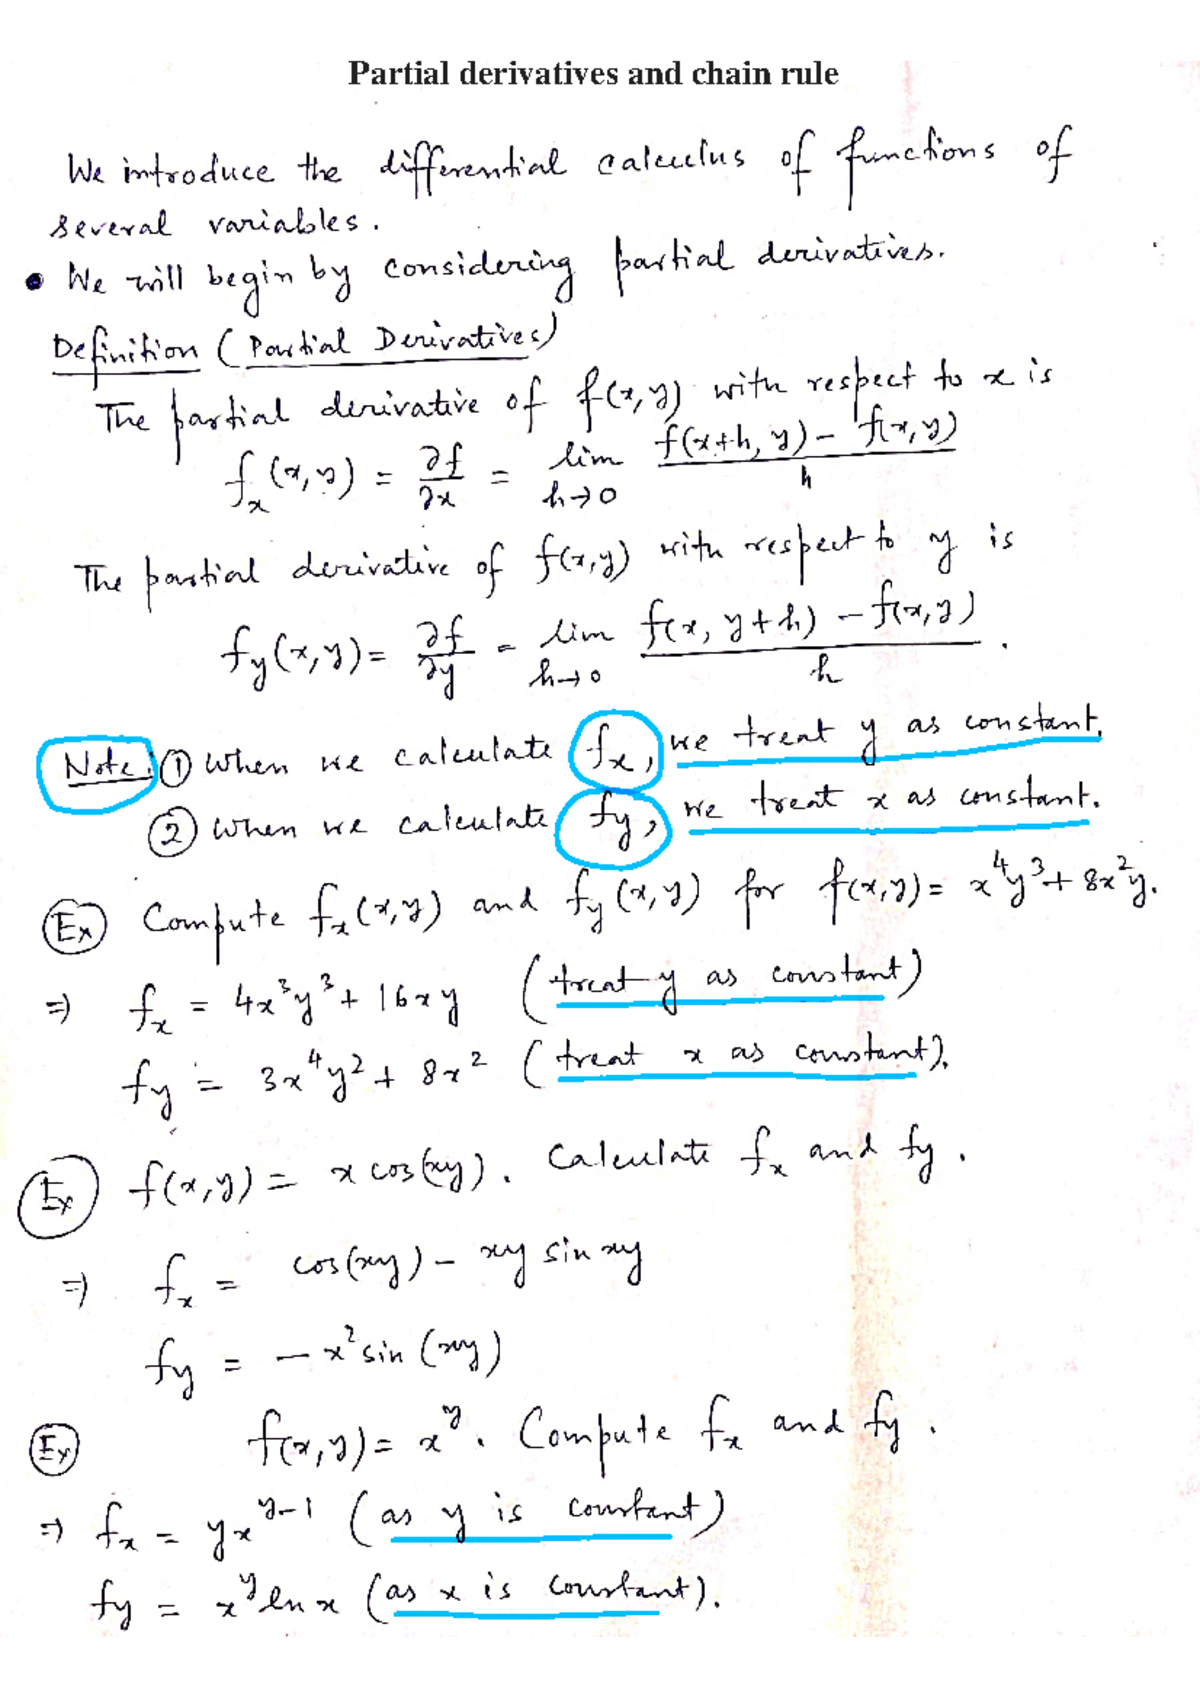 Partial derivatives and chain rule
We introduce the differential calculus of functions of
several variables.
• We will begin by considering partial derivatives.
Definition (Partial Derivatives)
The partial derivative of f(x,y) with respect to x is
fₓ(x,y) = ∂f/∂x = lim h→0 (f(x+h, y) - f(x,y))/h
The partial derivative of f(x,y) with respect to y is
f_y(x,y) = ∂f/∂y = lim h→0 (f(x, y+h) - f(x,y))/h.
Note: ① When we calculate fₓ, we treat y as constant.
② When we calculate f_y, we treat x as constant.
Ex Compute fₓ(x,y) and f_y(x,y) for f(x,y) = x⁴y³ + 8x²y.
⇒ fₓ = 4x³y³ + 16xy (treat y as constant)
f_y = 3x⁴y² + 8x² (treat x as constant).
Ex f(x,y) = x cos(xy). Calculate fₓ and f_y.
⇒ fₓ = cos(xy) - xy sin xy
f_y = -x² sin(xy)
Ex f(x,y) = x^y. Compute fₓ and f_y.
⇒ fₓ = yx^(y-1) (as y is constant)
f_y = x^y ln x (as x is constant).